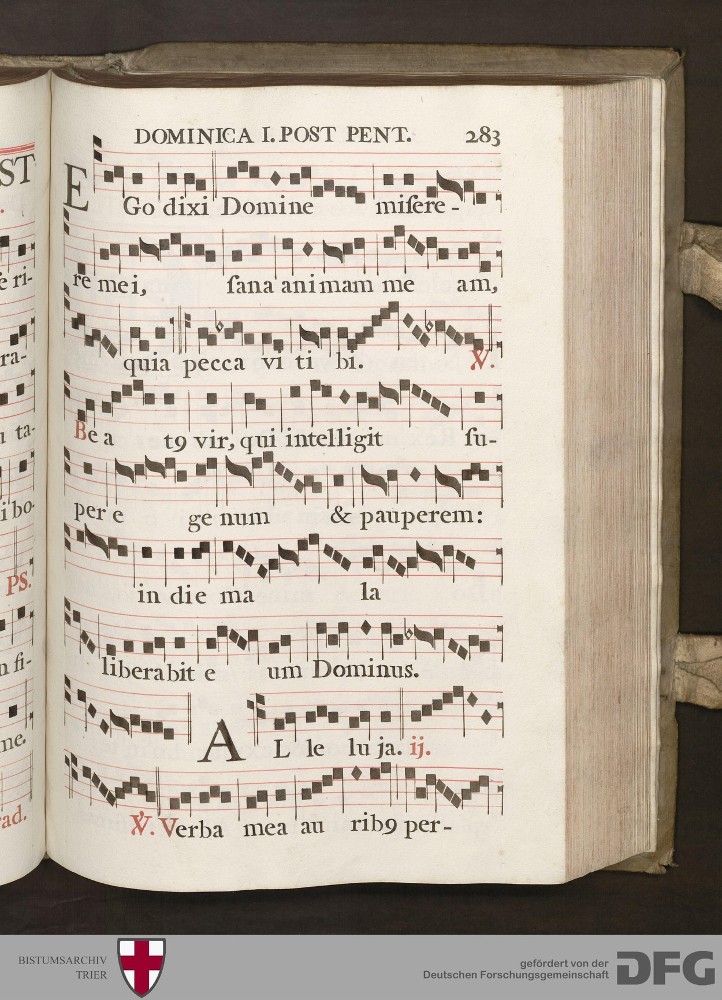 DOMINICA I. POST PENT. 283
EGo dixi Domine miſere-
re mei, ſana animam me am,
quia pecca vi ti bi. ℣.
Be a t9 vir, qui intelligit ſu-
per e ge num & pauperem:
in die ma la
liberabit e um Dominus.
AL le lu ja. ij.
℣. Verba mea au rib9 per-
ST
ſe ri-
ra-
ta-
i bo-
PS.
n fi-
me.
ad.
BISTUMSARCHIV
TRIER
gefördert von der
Deutschen Forschungsgemeinschaft
DFG